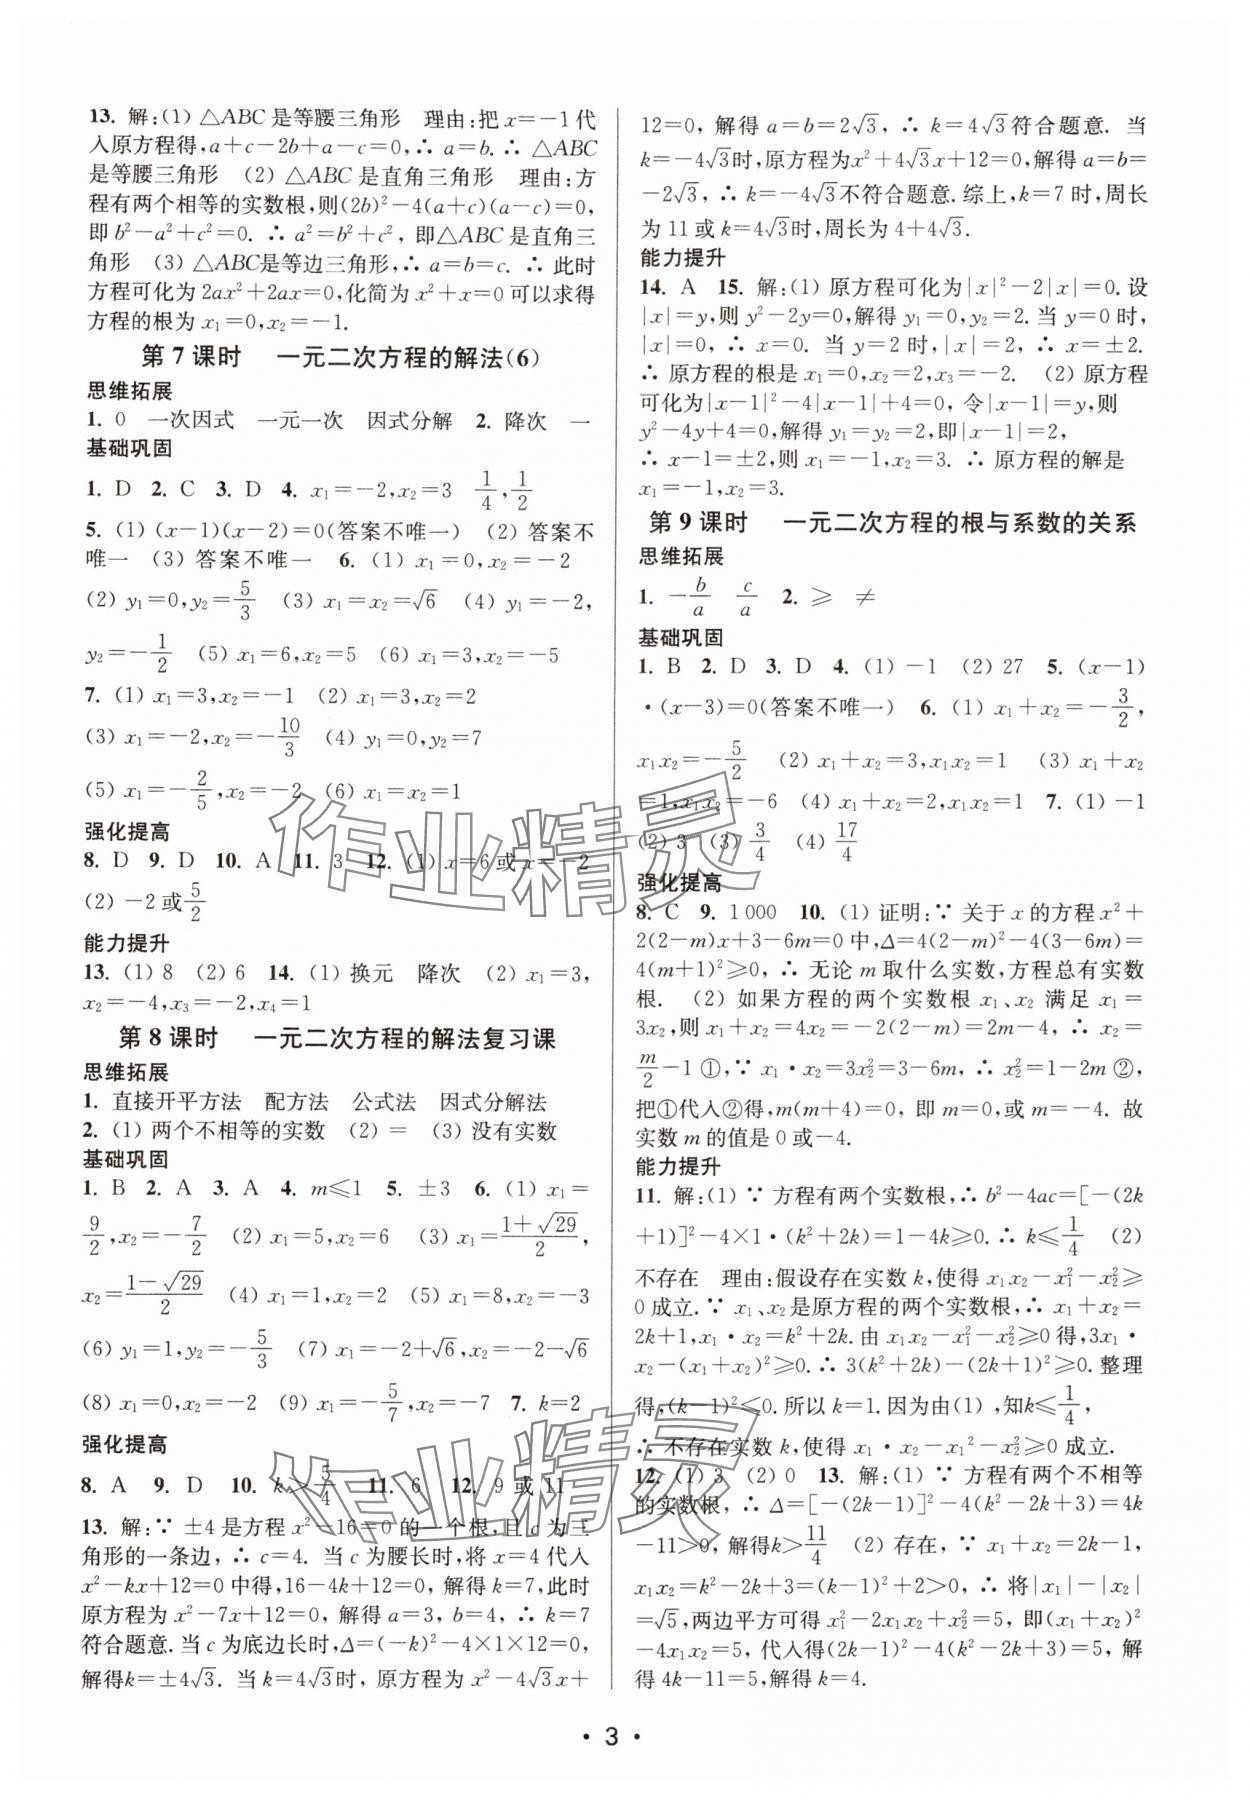 13. 解:(1) △ABC是等腰三角形　理由:把x=-1代
入原方程得,a+c-2b+a-c=0,∴ a=b.∴ △ABC
是等腰三角形　(2) △ABC是直角三角形　理由:方
程有两个相等的实数根,则(2b)²-4(a+c)(a-c)=0,
即b²-a²+c²=0.∴a²=b²+c²,即△ABC是直角三
角形　(3) △ABC是等边三角形,∴ a=b=c.∴ 此时
方程可化为2ax²+2ax=0,化简为x²+x=0可以求得
方程的根为x₁=0,x₂=-1.
第7课时　一元二次方程的解法(6)
思维拓展
1. 0　一次因式　一元一次　因式分解　2. 降次　一
基础巩固
1. D　2. C　3. D　4. x₁=-2,x₂=3　1/4,1/2
5. (1) (x-1)(x-2)=0(答案不唯一)　(2) 答案不
唯一　(3) 答案不唯一　6. (1) x₁=0,x₂=-2
(2) y₁=0,y₂=5/3　(3) x₁=x₂=√6　(4) y₁=-2,
y₂=-1/2　(5) x₁=6,x₂=5　(6) x₁=3,x₂=-5
7. (1) x₁=3,x₂=-1　(2) x₁=3,x₂=2
(3) x₁=-2,x₂=-10/3　(4) y₁=0,y₂=7
(5) x₁=-2/5,x₂=-2　(6) x₁=x₂=1
强化提高
8. D　9. D　10. A　11. 3　12. (1) x=6或x=-2
(2) -2或5/2
能力提升
13. (1) 8　(2) 6　14. (1) 换元　降次　(2) x₁=3,
x₂=-4,x₃=-2,x₄=1
第8课时　一元二次方程的解法复习课
思维拓展
1. 直接开平方法　配方法　公式法　因式分解法
2. (1) 两个不相等的实数　(2) =　(3) 没有实数
基础巩固
1. B　2. A　3. A　4. m≤1　5. ±3　6. (1) x₁=
9/2,x₂=-7/2　(2) x₁=5,x₂=6　(3) x₁=(1+√29)/2,
x₂=(1-√29)/2　(4) x₁=1,x₂=2　(5) x₁=8,x₂=-3
(6) y₁=1,y₂=-5/3　(7) x₁=-2+√6,x₂=-2-√6
(8) x₁=0,x₂=-2　(9) x₁=-5/7,x₂=-7　7. k=2
强化提高
8. A　9. D　10. k>5/4　11. 6　12. 9或11
13. 解:∵ ±4是方程x²-16=0的一个根,且c为三
角形的一条边,∴ c=4. 当c为腰长时,将x=4代入
x²-kx+12=0中得,16-4k+12=0,解得k=7,此时
原方程为x²-7x+12=0,解得a=3,b=4,∴ k=7
符合题意.当c为底边长时,Δ=(-k)²-4×1×12=0,
解得k=±4√3. 当k=4√3时,原方程为x²-4√3x+
12=0,解得a=b=2√3,∴ k=4√3符合题意. 当
k=-4√3时,原方程为x²+4√3x+12=0,解得a=b=
-2√3,∴ k=-4√3不符合题意.综上,k=7时,周长
为11或k=4√3时,周长为4+4√3.
能力提升
14. A　15. 解:(1) 原方程可化为|x|²-2|x|=0.设
|x|=y,则y²-2y=0,解得y₁=0,y₂=2. 当y=0时,
|x|=0,∴ x=0. 当y=2时,|x|=2,∴ x=±2.
∴ 原方程的根是x₁=0,x₂=2,x₃=-2.　(2) 原方程
可化为|x-1|²-4|x-1|+4=0,令|x-1|=y,则
y²-4y+4=0,解得y₁=y₂=2,即|x-1|=2,
∴ x-1=±2,则x₁=-1,x₂=3. ∴ 原方程的解是
x₁=-1,x₂=3.
第9课时　一元二次方程的根与系数的关系
思维拓展
1. -b/a　c/a　2. ≥　≠
基础巩固
1. B　2. D　3. D　4. (1) -1　(2) 27　5. (x-1)
·(x-3)=0(答案不唯一)　6. (1) x₁+x₂=-3/2,
x₁x₂=-5/2　(2) x₁+x₂=3,x₁x₂=1　(3) x₁+x₂
=1,x₁x₂=-6　(4) x₁+x₂=2,x₁x₂=1　7. (1) -1
(2) 3　(3) 3/4　(4) 17/4
强化提高
8. C　9. 1 000　10. (1) 证明:∵ 关于x的方程x²+
2(2-m)x+3-6m=0中,Δ=4(2-m)²-4(3-6m)=
4(m+1)²≥0,∴ 无论m取什么实数,方程总有实数
根.　(2) 如果方程的两个实数根x₁、x₂满足x₁=
3x₂,则x₁+x₂=4x₂=-2(2-m)=2m-4,∴ x₂=
m/2-1 ①,∵ x₁·x₂=3x₂²=3-6m,∴ x₂²=1-2m ②,
把①代入②得,m(m+4)=0,即m=0,或m=-4. 故
实数m的值是0或-4.
能力提升
11. 解:(1) ∵ 方程有两个实数根,∴ b²-4ac=[-(2k
+1)]²-4×1·(k²+2k)=1-4k≥0.∴ k≤1/4　(2)
不存在　理由:假设存在实数k,使得x₁x₂-x₁²-x₂²≥
0成立.∵ x₁、x₂是原方程的两个实数根,∴ x₁+x₂=
2k+1,x₁·x₂=k²+2k.由x₁x₂-x₁²-x₂²≥0得,3x₁·
x₂-(x₁+x₂)²≥0.∴ 3(k²+2k)-(2k+1)²≥0.整理
得,(k-1)²≤0. ∴ k=1. 因为由(1),知k≤1/4,
∴ 不存在实数k,使得x₁·x₂-x₁²-x₂²≥0成立.
12. (1) 3　(2) 0　13. 解:(1) ∵ 方程有两个不相等
的实数根,∴ Δ=[-(2k-1)]²-4(k²-2k+3)=4k
-11>0,解得k>11/4　(2) 存在,∵ x₁+x₂=2k-1,
x₁x₂=k²-2k+3=(k-1)²+2>0,∴ 将|x₁|-|x₂|
=√5,两边平方可得x₁²-2x₁x₂+x₂²=5,即(x₁+x₂)²
-4x₁x₂=5,代入得(2k-1)²-4(k²-2k+3)=5,解
得4k-11=5,解得k=4.
· 3 ·
作业精灵
作业精灵